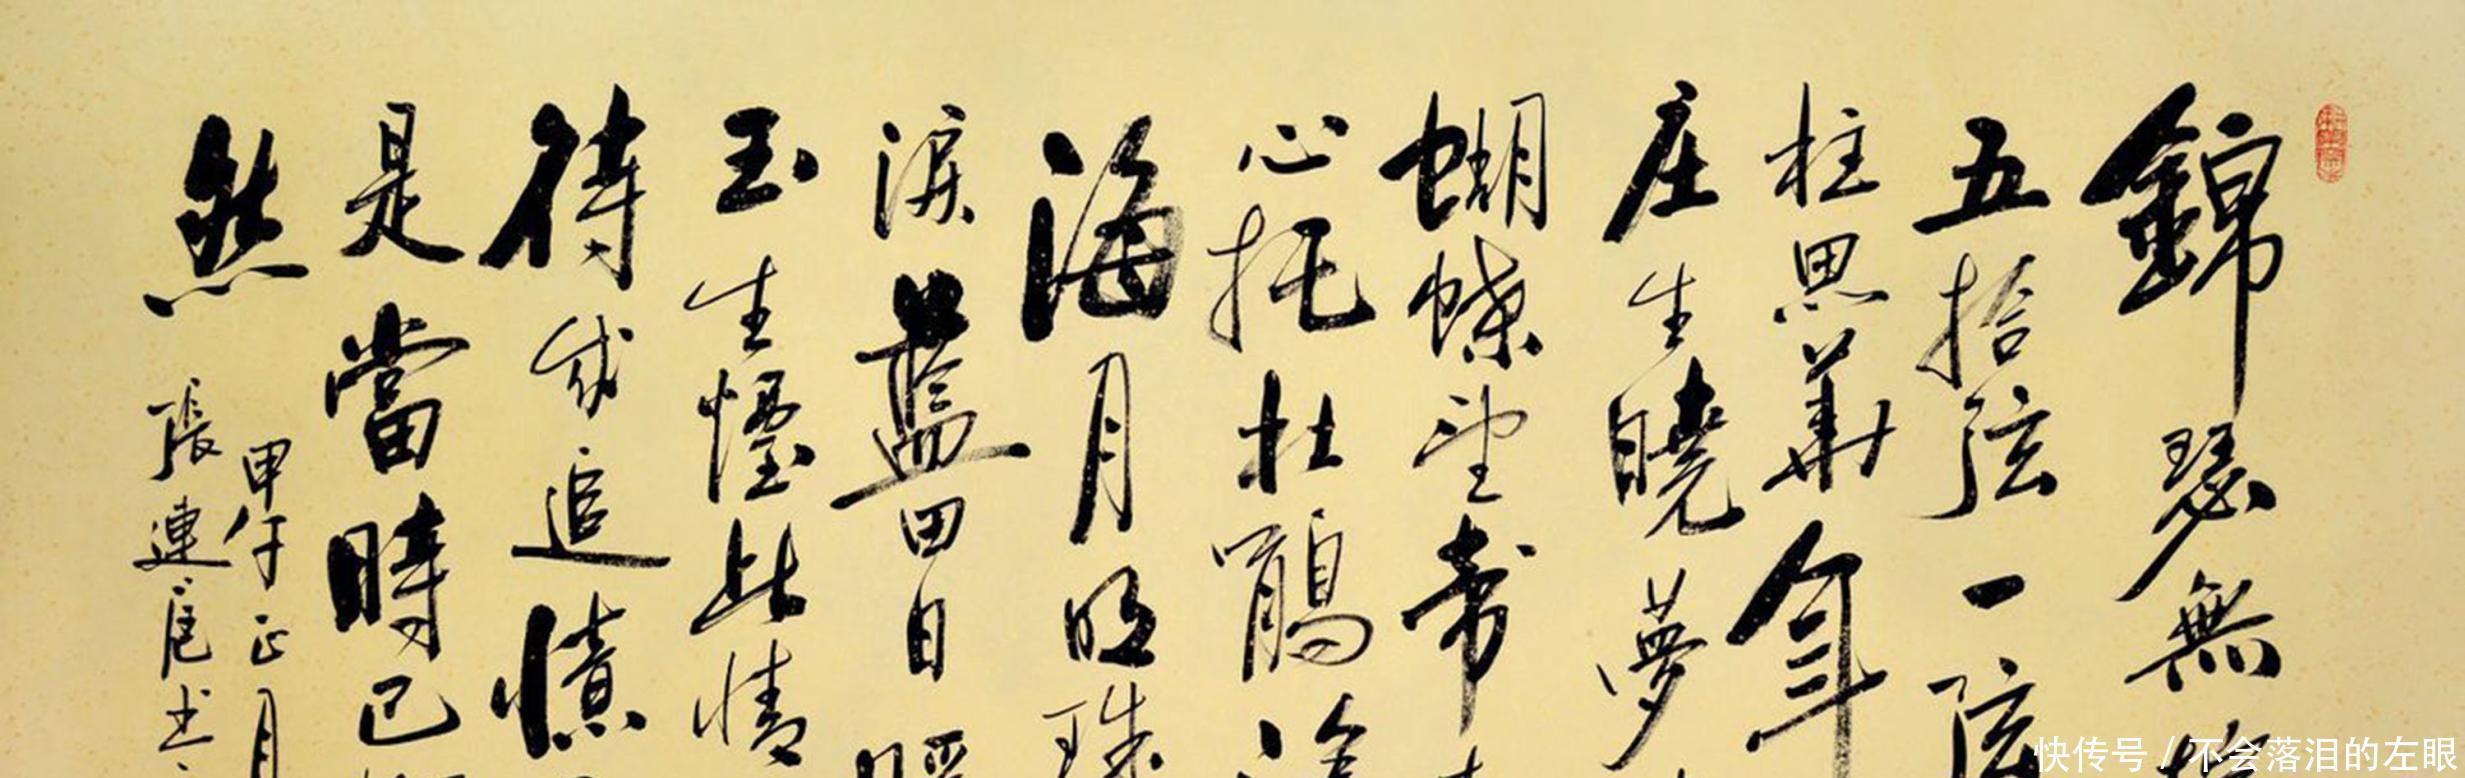 錦瑟無
五拾弦一弦
柱思華年
庄生曉夢
蝴蝶望帝
心托杜鵑滄
海月明珠
淚藍田日暖
玉生煙此情
待成追憶
是當時已
然
甲午正月
張連
快传号 / 不会落泪的左眼